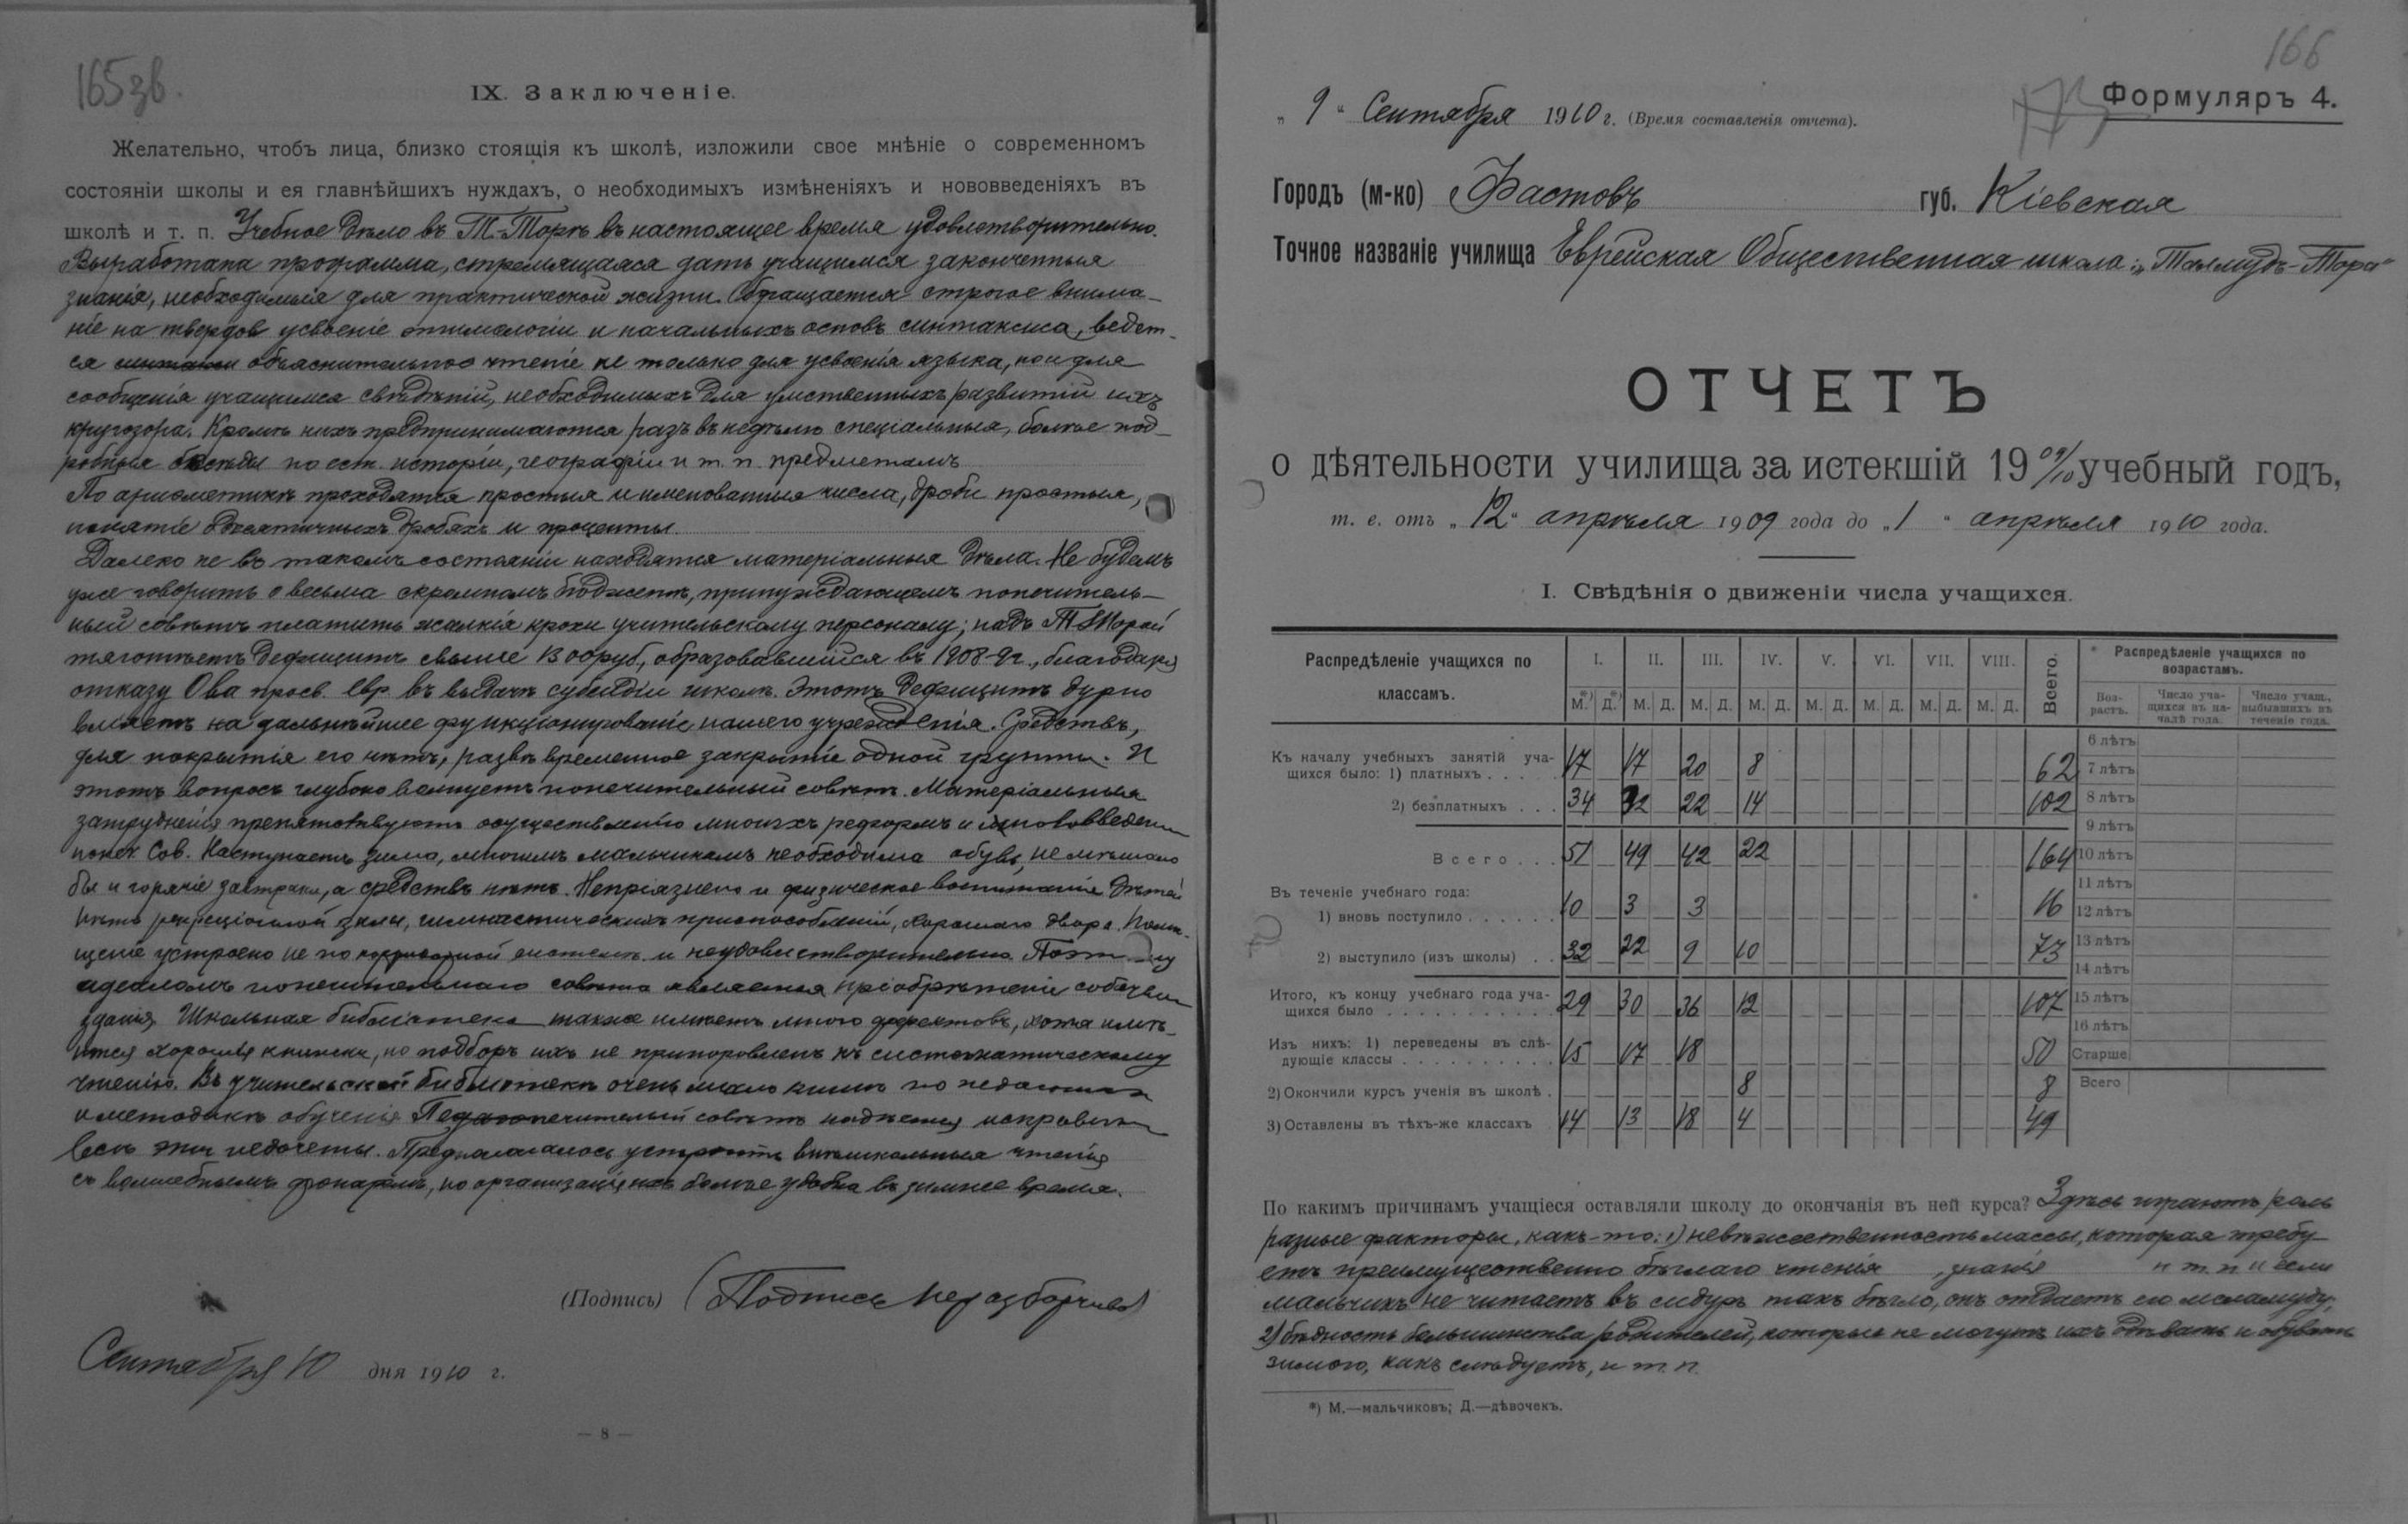 165зв.
IX. Заключеніе.
Желательно, чтобъ лица, близко стоящія къ школѣ, изложили свое мнѣніе о современномъ
состояніи школы и ея главнѣйшихъ нуждахъ, о необходимыхъ измѣненіяхъ и нововведеніяхъ въ
школѣ и т. п. Учебное дѣло въ Т.-Торѣ въ настоящее время удовлетворительно.
Выработана программа, стремящаяся дать учащимся законченныя
знанія, необходимыя для практической жизни. Обращается строгое внима-
ніе на твердое усвоеніе этимологіи и начальныхъ основъ синтаксиса, ведет-
ся объяснительное чтеніе не только для усвоенія языка, но и для
сообщенія учащимся свѣдѣній, необходимыхъ для умственныхъ развитій ихъ
кругозора. Кромѣ нихъ предпринимаются разъ въ недѣлю спеціальныя, болѣе под-
робныя бесѣды по ест. исторіи, географіи и т. п. предметамъ
По ариѳметикѣ проходятся простыя и именованныя числа, дроби простыя,
понятіе о десятичныхъ дробяхъ и проценты.
Далеко не въ такомъ состояніи находятся матеріальныя дѣла. Не будемъ
уже говорить о весьма скромномъ бюджетѣ, принуждающемъ попечитель-
ный совѣтъ платить жалкія крохи учительскому персоналу; надъ Т Торой
тяготѣетъ дефицитъ свыше 1300 руб, образовавшійся въ 1908-9 г., благодаря
отказу О-ва просв. евр. въ выдачѣ субсидіи школѣ. Этотъ дефицитъ дурно
вліяетъ на дальнѣйшее функціонированіе нашего учрежденія. Средствъ,
для покрытія его нѣтъ, развѣ временное закрытіе одной группы. И
этотъ вопросъ глубоко волнуетъ попечительный совѣтъ. Матеріальныя
затрудненія препятствуютъ осуществленію многихъ реформъ и нововведеній
попеч. Сов. Наступаетъ зима, многимъ мальчикамъ необходима обувь, не мѣшало
бы и горячіе завтраки, а средствъ нѣтъ. и физическое воспитаніе дѣтей
Нѣтъ рекреаціонной залы, гимнастическихъ приспособленій, хорошаго двора. Помѣ-
щеніе устроено не по корридорной системѣ и неудовлетворительно. Поэтому
идеаломъ попечительнаго совѣта является пріобрѣтеніе собствен
зданія. Школьная библіотека также имѣетъ много дефектовъ, хотя имѣ-
ются хорошія книжки, но подборъ ихъ не приноровленъ къ систематическому
чтенію. Въ учительской библіотекѣ очень мало книгъ по педагогикѣ
и методикѣ обученія. Попечительный совѣтъ надѣется исправить
всѣ эти недочеты. Предполагалось устроить внѣшкольныя чтенія
съ волшебнымъ фонаремъ, но организація ихъ болѣе удобна въ зимнее время.
(Подпись) (Подпись неразборчива)
Сентября 10 дня 1910 г.
— 8 —
166
Формуляръ 4.
„ 9 “ Сентября 1910 г. (Время составленія отчета).
Городъ (м-ко) Фастовъ губ. Кіевская
Точное названіе училища Еврейская Общественная школа: „Талмудъ-Тора“
ОТЧЕТЪ
о дѣятельности училища за истекшій 19 09/10 учебный годъ,
т. е. отъ „ 12 “ апрѣля 1909 года до „ 1 “ апрѣля 1910 года.
I. Свѣдѣнія о движеніи числа учащихся.
Распредѣленіе учащихся по классамъ. I. II. III. IV. V. VI. VII. VIII. Всего. * Распредѣленіе учащихся по возрастамъ.
М.*) Д.*) М. Д. М. Д. М. Д. М. Д. М. Д. М. Д. М. Д. Воз-растъ. Число уча-щихся въ на-чалѣ года. Число учащ., выбывшихъ въ теченіе года.
Къ началу учебныхъ занятій уча-
щихся было: 1) платныхъ . . . . 17 17 20 8 62
2) безплатныхъ . . . 34 32 22 14 102
Всего . . . 51 49 42 22 164
Въ теченіе учебнаго года:
1) вновь поступило . . . . . . 10 3 3 16
2) выступило (изъ школы) . . 32 22 9 10 73
Итого, къ концу учебнаго года уча-
щихся было . . . . . . . . . . . 29 30 36 12 107
Изъ нихъ: 1) переведены въ слѣ-
дующіе классы . . . . . . . . . . 15 17 18 50
2) Окончили курсъ ученія въ школѣ . 8 8
3) Оставлены въ тѣхъ-же классахъ 14 13 18 4 49
6 лѣтъ
7 лѣтъ
8 лѣтъ
9 лѣтъ
10 лѣтъ
11 лѣтъ
12 лѣтъ
13 лѣтъ
14 лѣтъ
15 лѣтъ
16 лѣтъ
Старше
Всего
По какимъ причинамъ учащіеся оставляли школу до окончанія въ ней курса? Здѣсь играютъ роль
разные факторы, какъ-то: 1) невѣжественность массы, которая требу-
етъ преимущественно бѣглаго чтенія , знанія и т. п. и если
мальчикъ не читаетъ въ сидурѣ такъ бѣгло, онъ отдаетъ его меламуду;
2) бѣдность большинства родителей, которые не могутъ ихъ одѣвать и обувать
зимою, какъ слѣдуетъ, и т. п.
*) М.—мальчиковъ; Д.—дѣвочекъ.